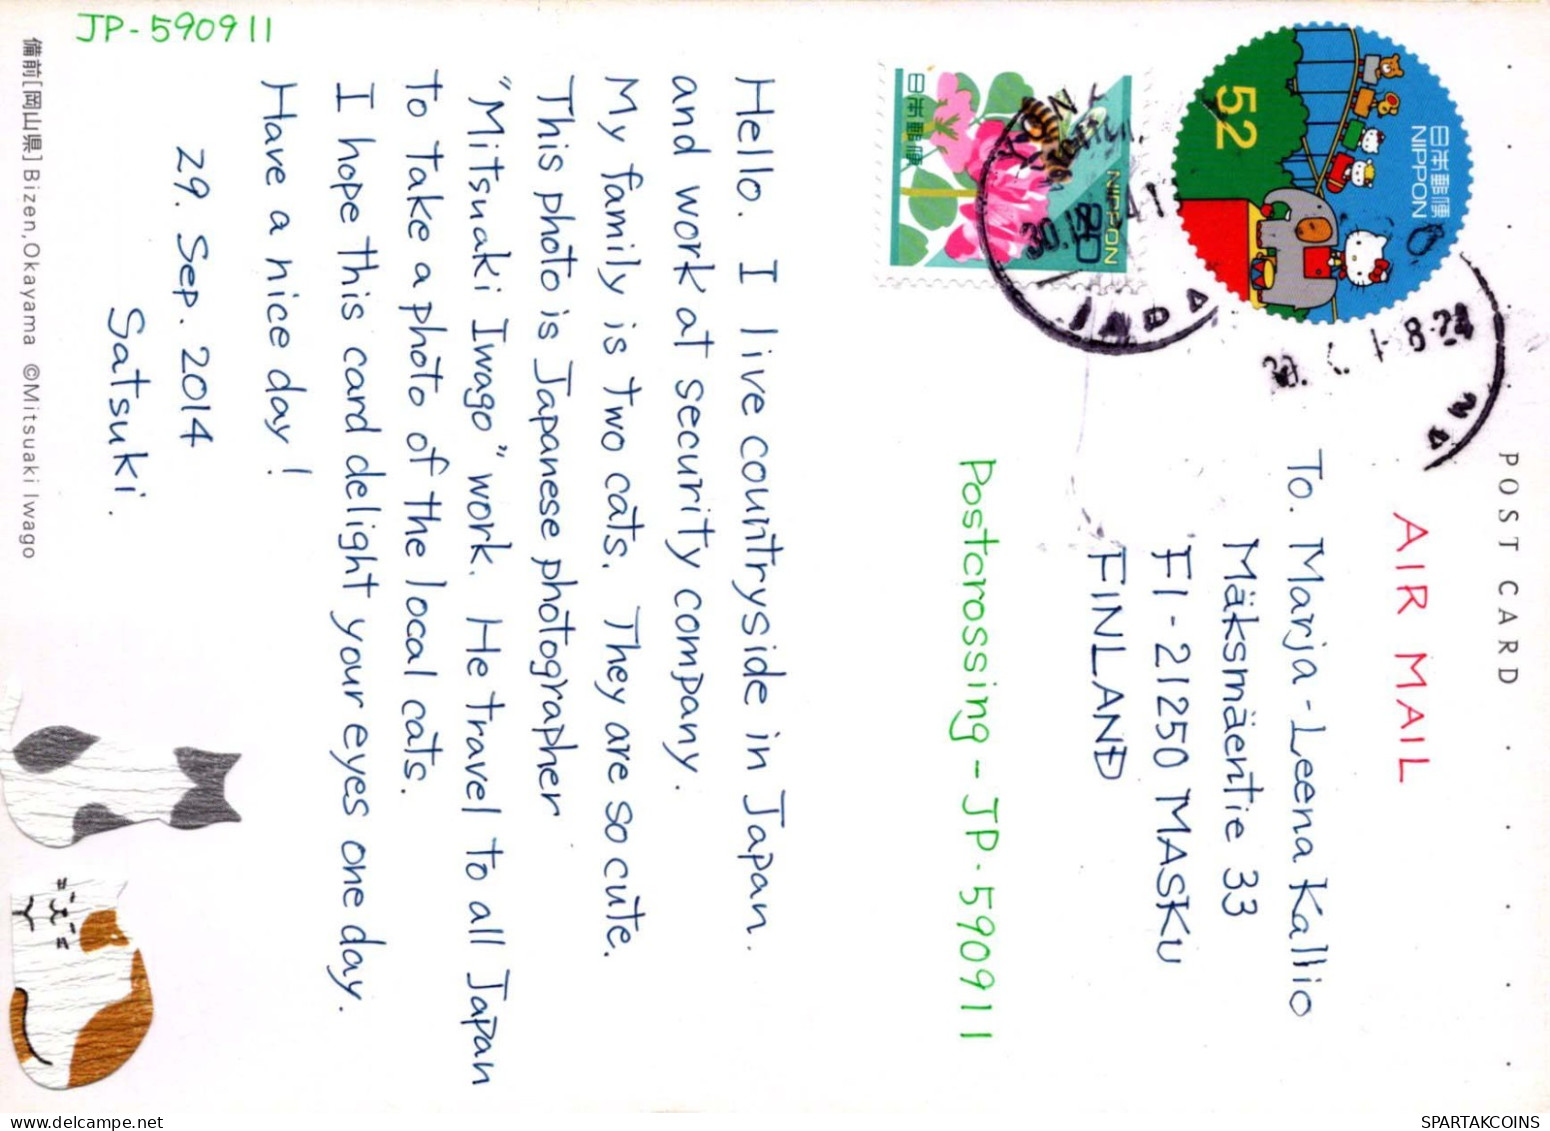 POST CARD
AIR MAIL
日本郵便
NIPPON
52
日本郵便
NIPPON
80
To. Marja-Leena Kallio
Mäksmäentie 33
FI-21250 MASKU
FINLAND
Postcrossing - JP-590911
Hello. I live countryside in Japan.
and work at security company.
My family is two cats. They are so cute.
This photo is Japanese photographer
"Mitsuaki Iwago" work. He travel to all Japan
to take a photo of the local cats.
I hope this card delight your eyes one day.
Have a nice day!
29. Sep. 2014
Satsuki.
JP-590911
備前[岡山県] Bizen, Okayama ©Mitsuaki Iwago
SPARTAKCOINS